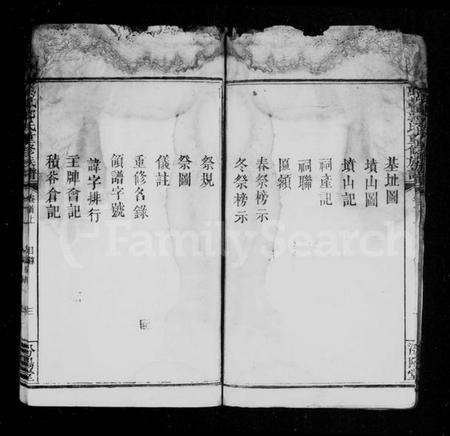 基址圖
墳山圖
墳山記
祠產記
祠聯
匾額
春祭榜示
冬祭榜示
祭規
祭圖
儀註
重修名錄
領譜字號
諱字排行
主牌會記
積谷倉記
汾陽堂
FamilySearch